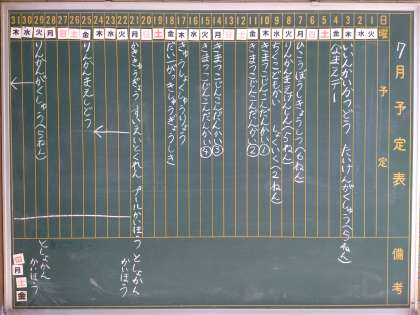 7月予定表
備考
日 1 2 3 4 5 6 7 8 9 10 11 12 13 14 15 16 17 18 19 20 21 22 23 24 25 26 27 28 29 30 31
曜 火 水 木 金 土 日 月 火 水 木 金 土 日 月 火 水 木 金 土 日 月 火 水 木 金 土 日 月 火 水 木
予定
いいんかいかつどう たいけんがくしゅう(5ねん)
なまえデー
ひこうぼうしきょうしつ(6ねん)
りんかんまえけんしん(5ねん)
ちくこどもかい しょくいく(2ねん)
きまつこじんこんだんかい①
きまつこじんこんだんかい②
きまつこじんこんだんかい③
きまつこじんこんだんかい④
きゅうしょくしゅうりょう
だい1がっきしゅうぎょうしき
かききゅうぎょう すいえいとくれん プールかいほう としょかんかいほう
りんかんまえしどう
りんかんがくしゅう(5ねん)
としょかんかいほう
日 月 土 金